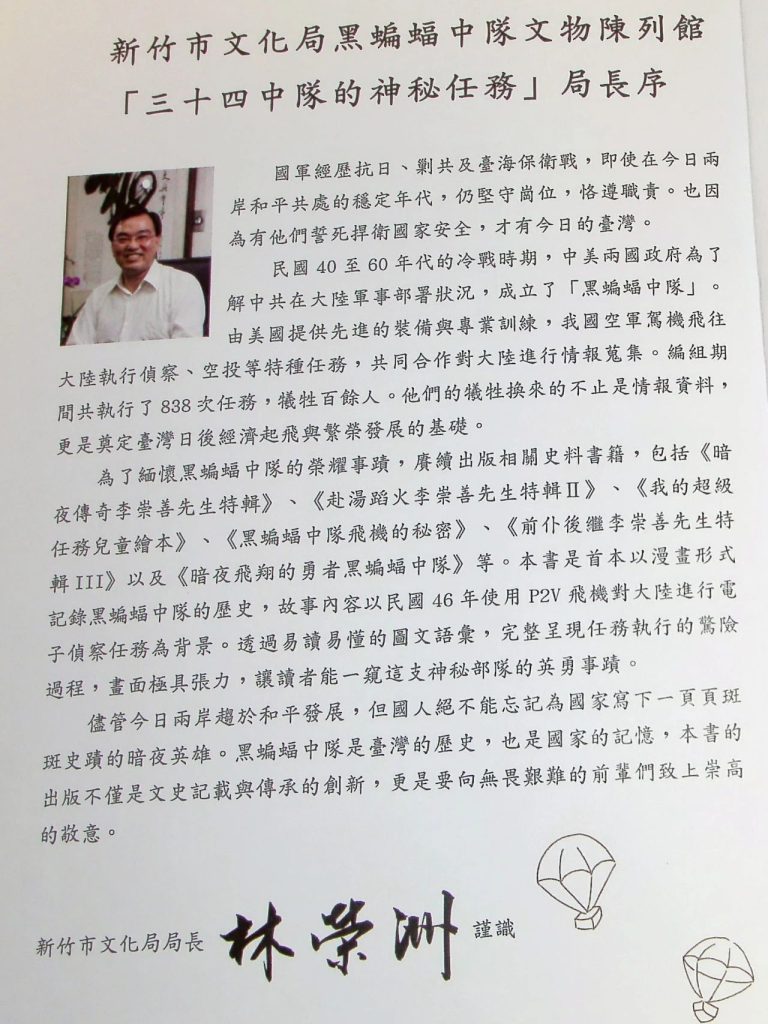 新竹市文化局黑蝙蝠中隊文物陳列館
「三十四中隊的神秘任務」局長序
國軍經歷抗日、剿共及臺海保衛戰，即使在今日兩
岸和平共處的穩定年代，仍堅守崗位，恪遵職責。也因
為有他們誓死捍衛國家安全，才有今日的臺灣。
民國 40 至 60 年代的冷戰時期，中美兩國政府為了
解中共在大陸軍事部署狀況，成立了「黑蝙蝠中隊」。
由美國提供先進的裝備與專業訓練，我國空軍駕機飛往
大陸執行偵察、空投等特種任務，共同合作對大陸進行情報蒐集。編組期
間共執行了 838 次任務，犧牲百餘人。他們的犧牲換來的不止是情報資料，
更是奠定臺灣日後經濟起飛與繁榮發展的基礎。
為了緬懷黑蝙蝠中隊的榮耀事蹟，賡續出版相關史料書籍，包括《暗
夜傳奇李崇善先生特輯》、《赴湯蹈火李崇善先生特輯Ⅱ》、《我的超級
任務兒童繪本》、《黑蝙蝠中隊飛機的秘密》、《前仆後繼李崇善先生特
輯 III》以及《暗夜飛翔的勇者黑蝙蝠中隊》等。本書是首本以漫畫形式
記錄黑蝙蝠中隊的歷史，故事內容以民國 46 年使用 P2V 飛機對大陸進行電
子偵察任務為背景。透過易讀易懂的圖文語彙，完整呈現任務執行的驚險
過程，畫面極具張力，讓讀者能一窺這支神秘部隊的英勇事蹟。
儘管今日兩岸趨於和平發展，但國人絕不能忘記為國家寫下一頁頁斑
斑史蹟的暗夜英雄。黑蝙蝠中隊是臺灣的歷史，也是國家的記憶，本書的
出版不僅是文史記載與傳承的創新，更是要向無畏艱難的前輩們致上崇高
的敬意。
新竹市文化局局長 林榮洲 謹識